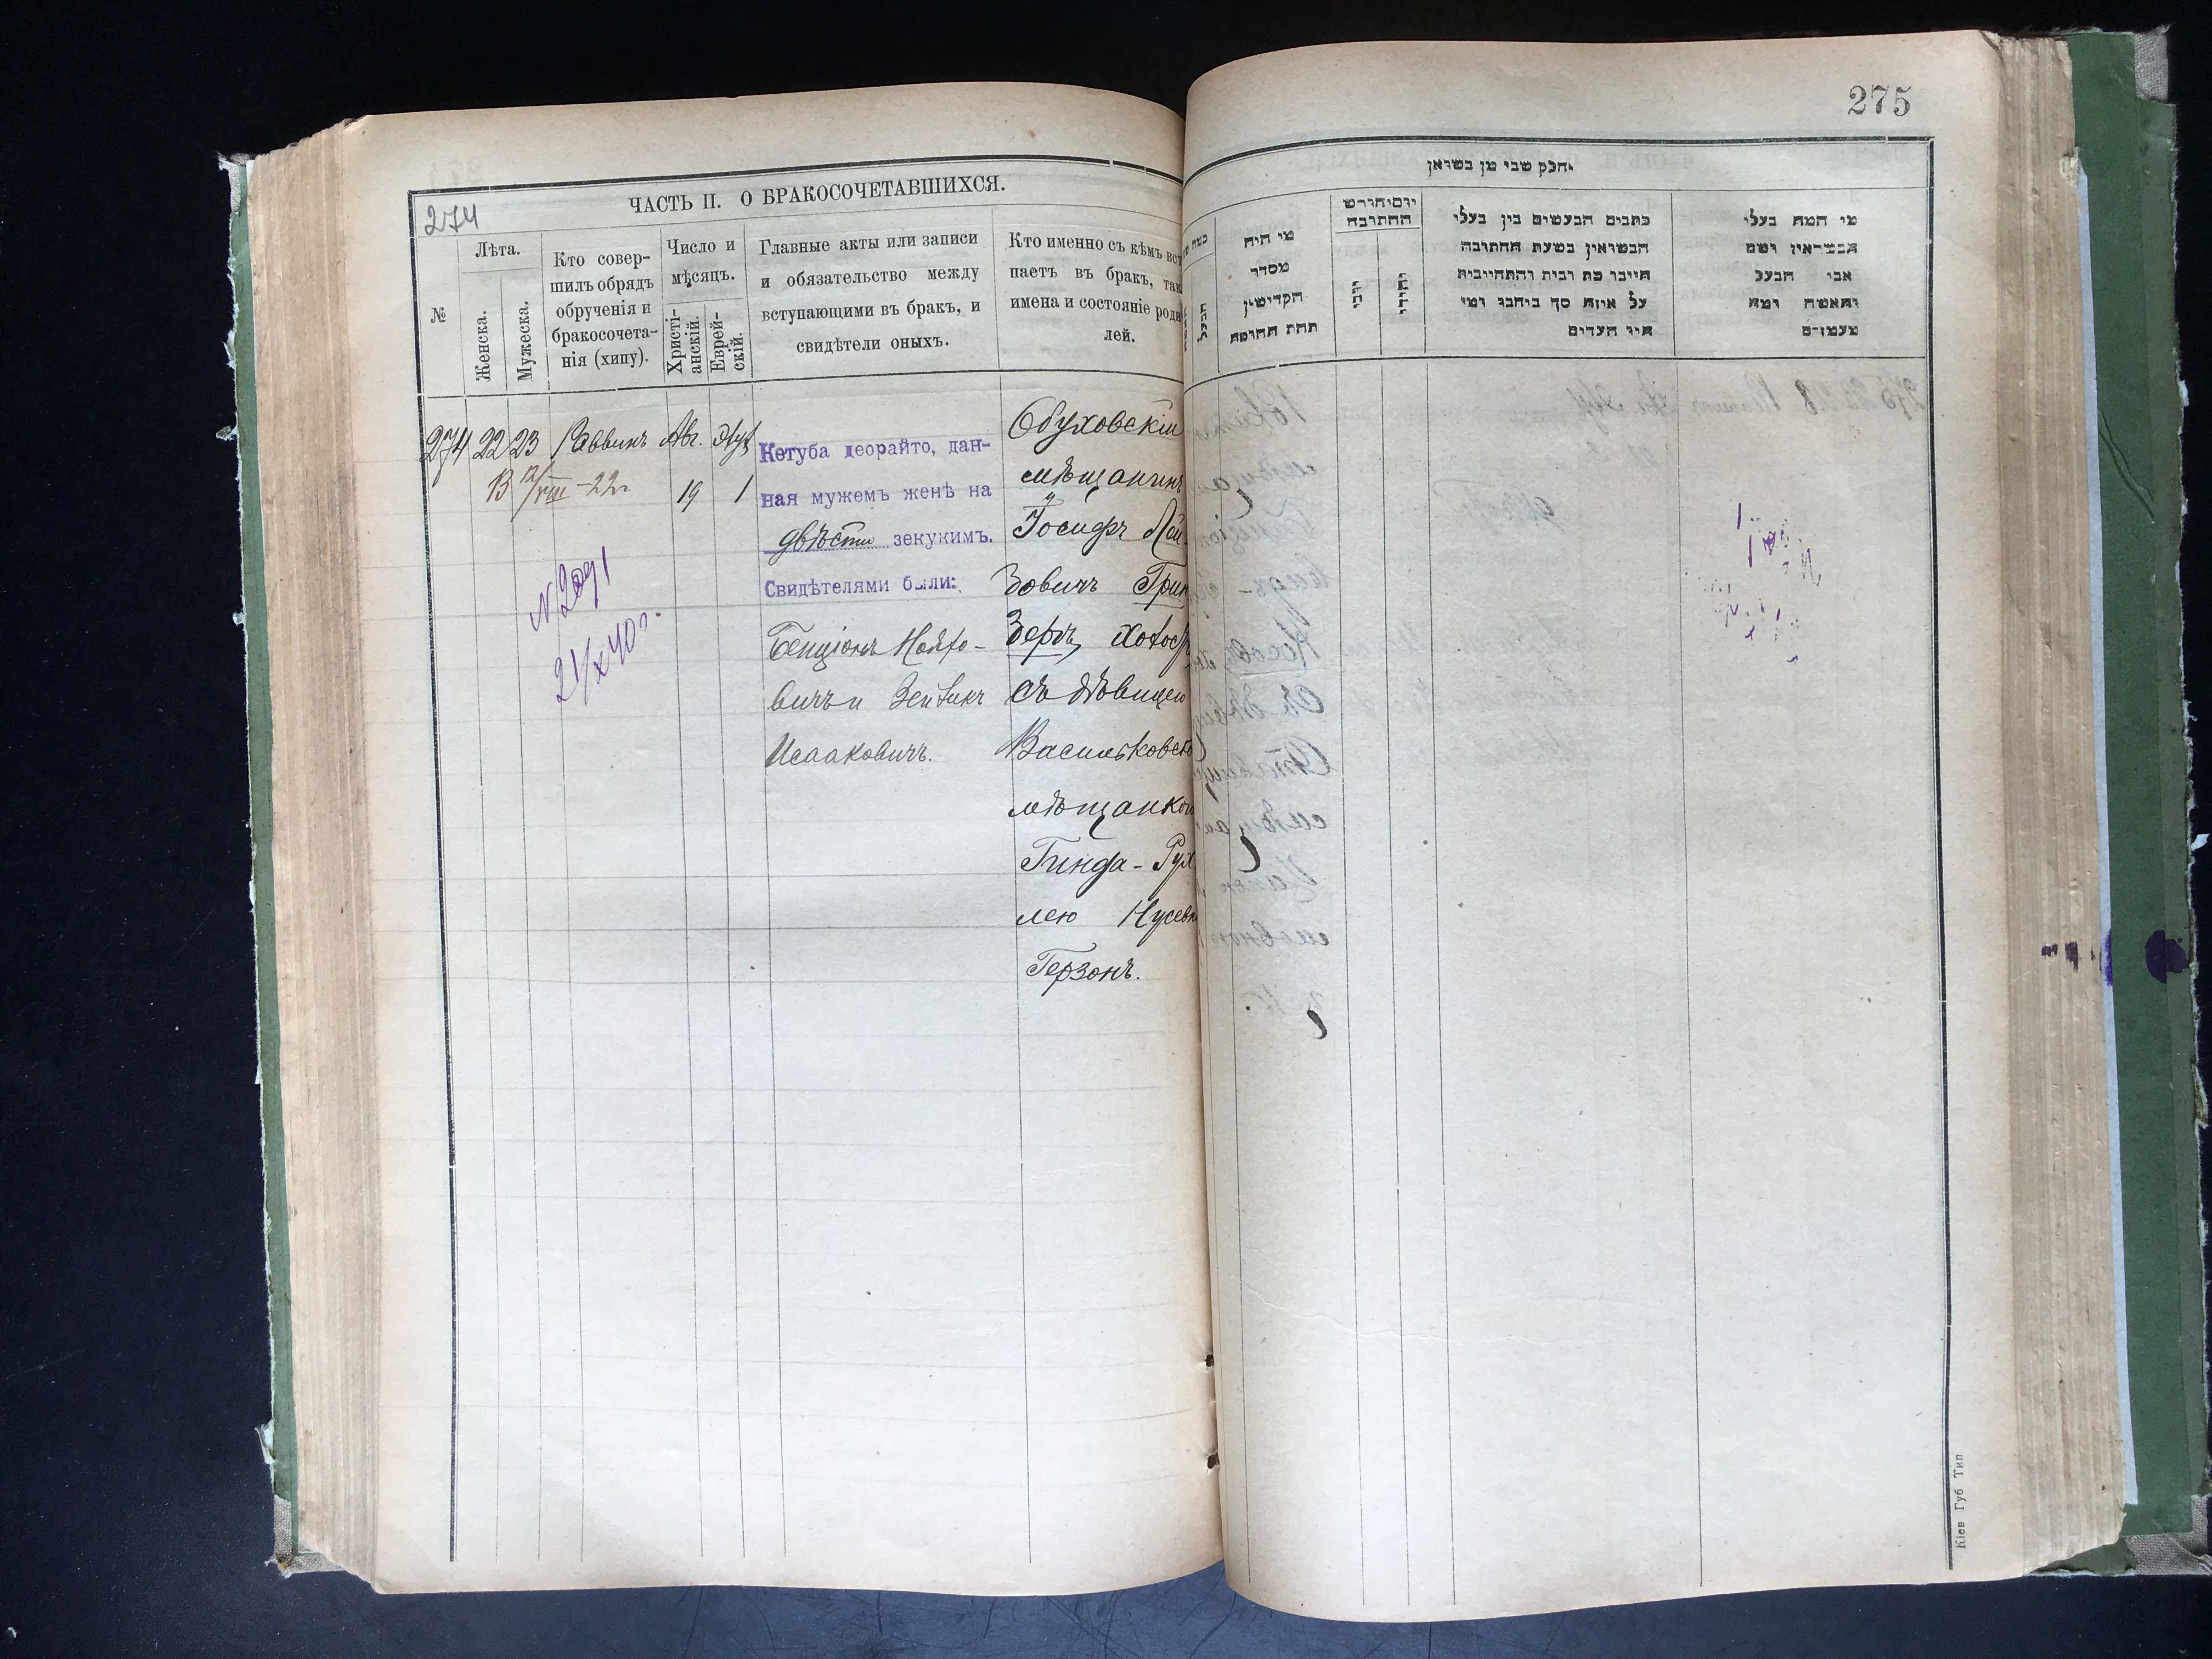 275
ЧАСТЬ II. О БРАКОСОЧЕТАВШИХСЯ.
274
№
Лѣта.
Женска.
Мужеска.
Кто совер-
шилъ обрядъ
обрученія и
бракосочета-
нія (хипу).
Число и
мѣсяцъ.
Христі-
анскій.
Еврей-
скій.
Главные акты или записи
и обязательство между
вступающими въ бракъ, и
свидѣтели оныхъ.
Кто именно съ кѣмъ вст
паетъ въ бракъ, так
имена и состояніе роди
лей.
274 22 23 Раввинъ Авг.
19 1
В 12/VIII-22г
№2091
21/X 40 г.
Кетуба деорайто, дан-
ная мужемъ женѣ на
двѣсти зекукимъ.
Свидѣтелями были:
Бенціонъ
вичъ и Зейликъ
Исааковичъ.
Обуховскій
мѣщанинъ
Іосифъ Лей-
зовичъ Грин
зергъ, холост
съ дѣвицею
Васильковско
мѣщанкою
Гинда-Рух
лею Нусевн
Герзонъ.
חלק שני מן בשואן
מי היה
מסדר
הקדישין
תחת החופה
יום וחודש
החתונה
כתבים הנעשים בין בעלי
הנשואין בשעת החתונה
היינו כת ובית והתחייבות
על איזה סך ביחבו ומי
היו העדים
מי המה בעלי
הנשואין ושם
אבי הבעל
והאשה ומה
מעמדם
Кіев Губ Тип